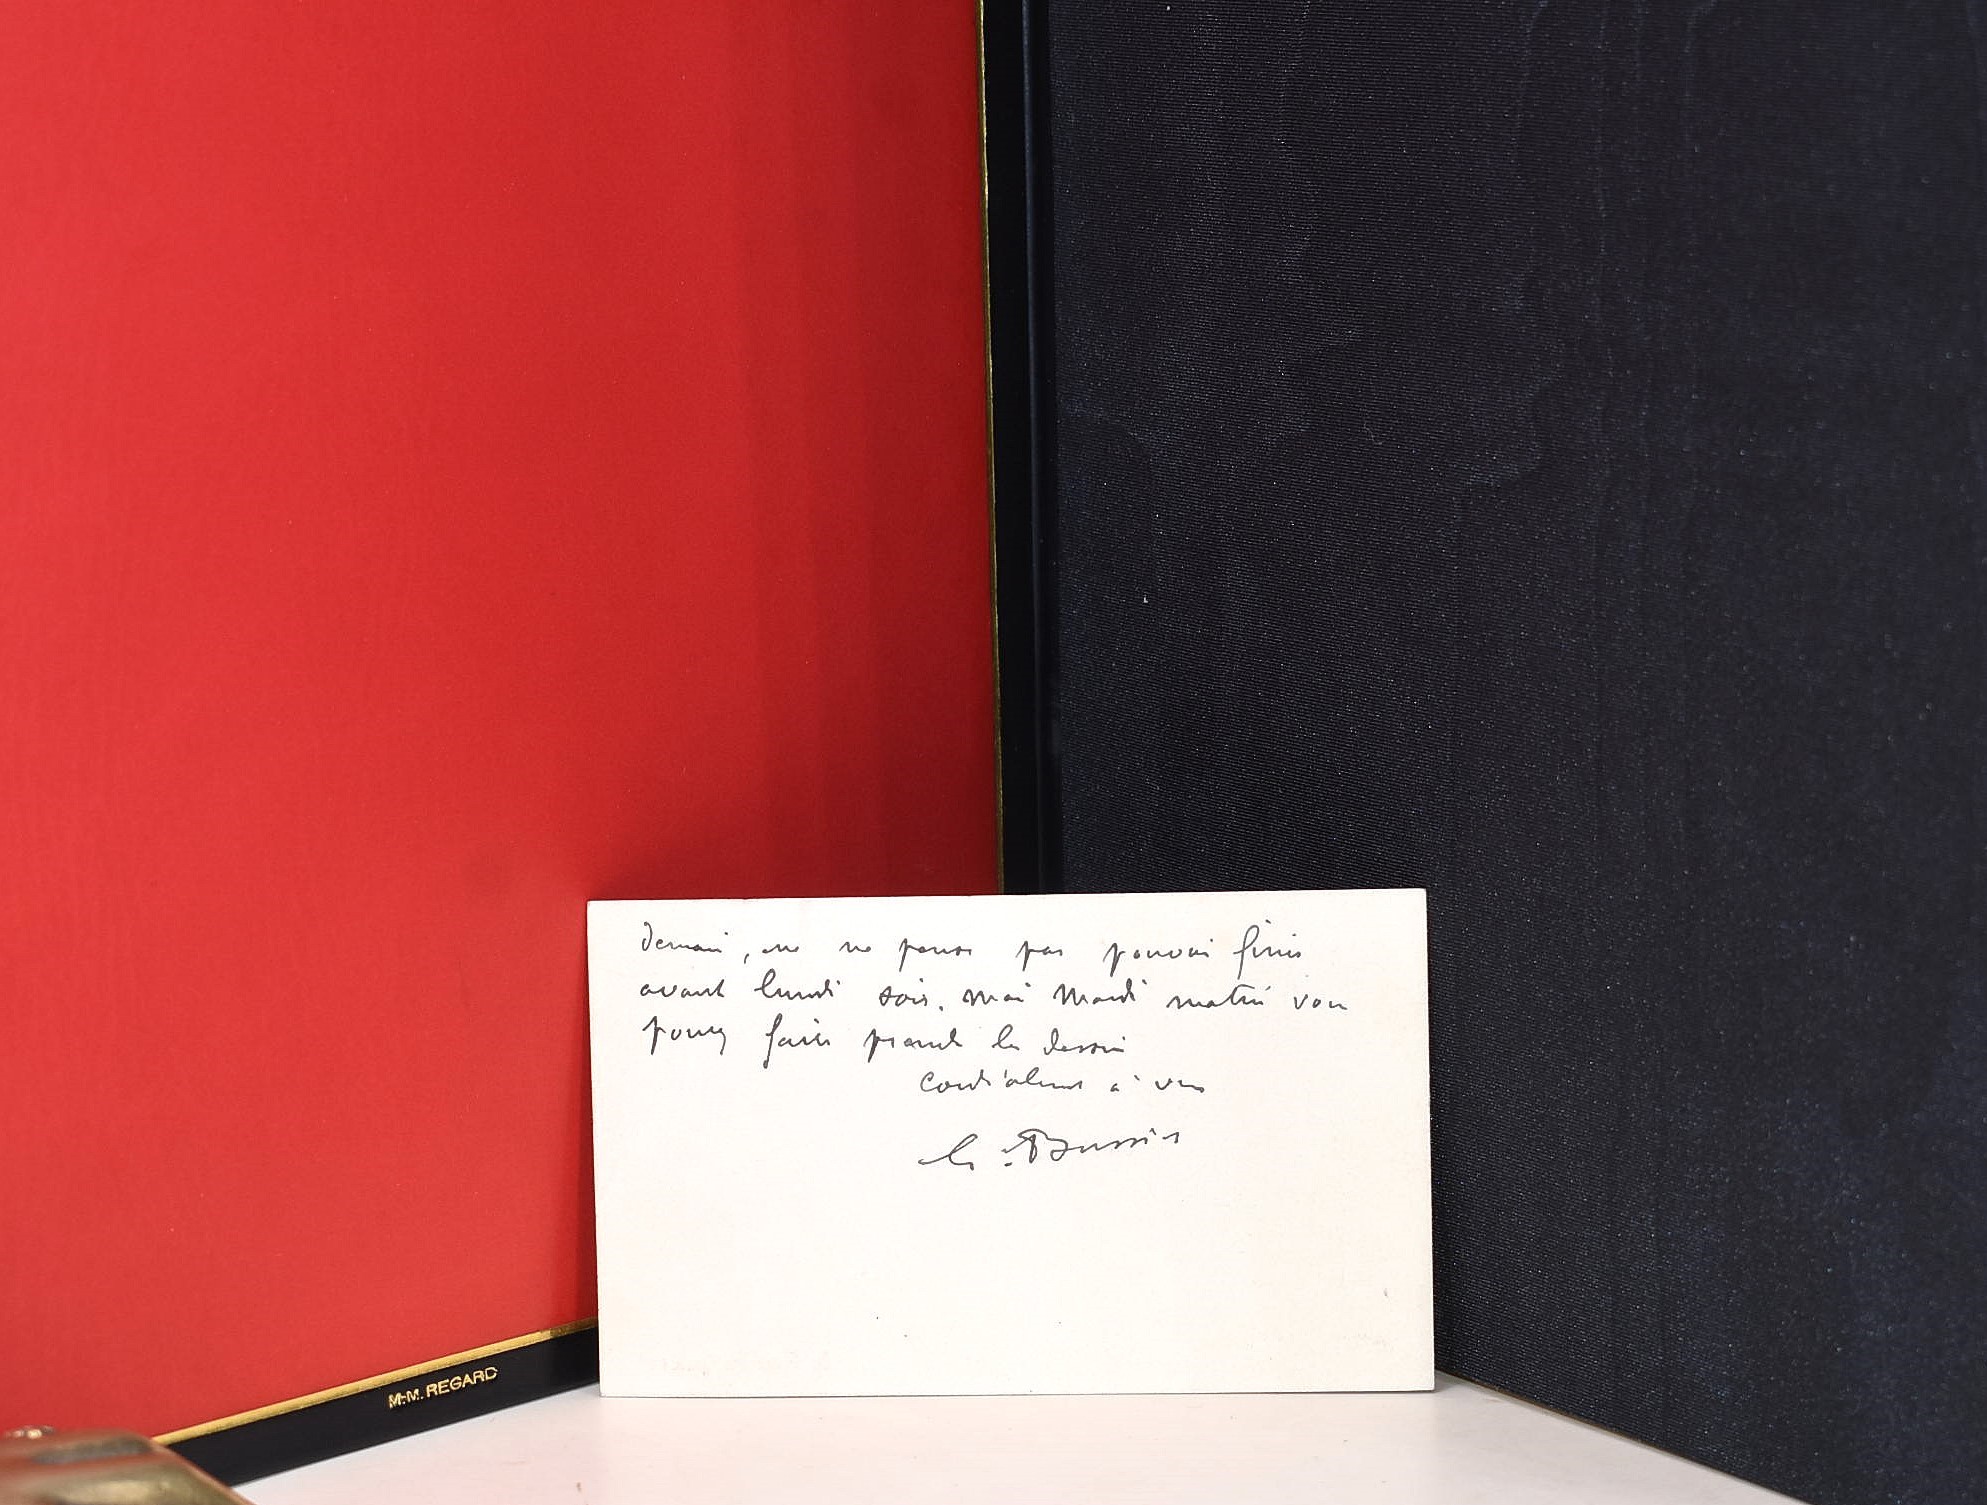 demain, je ne pense pas pouvoir finir
avant lundi soir. Mais Mardi matin vous
pourrez faire prendre les dessins
Cordialement à vous
M-M. REGARD